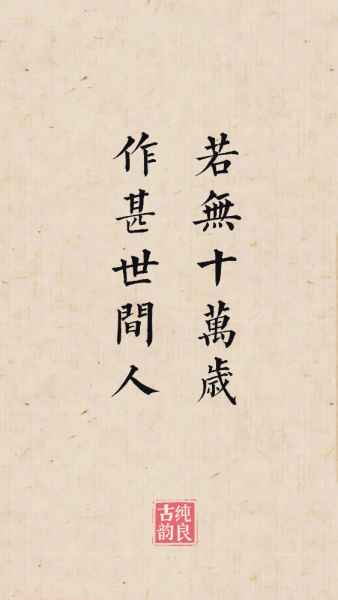 若無十萬歳
作甚世間人
纯良
古韵